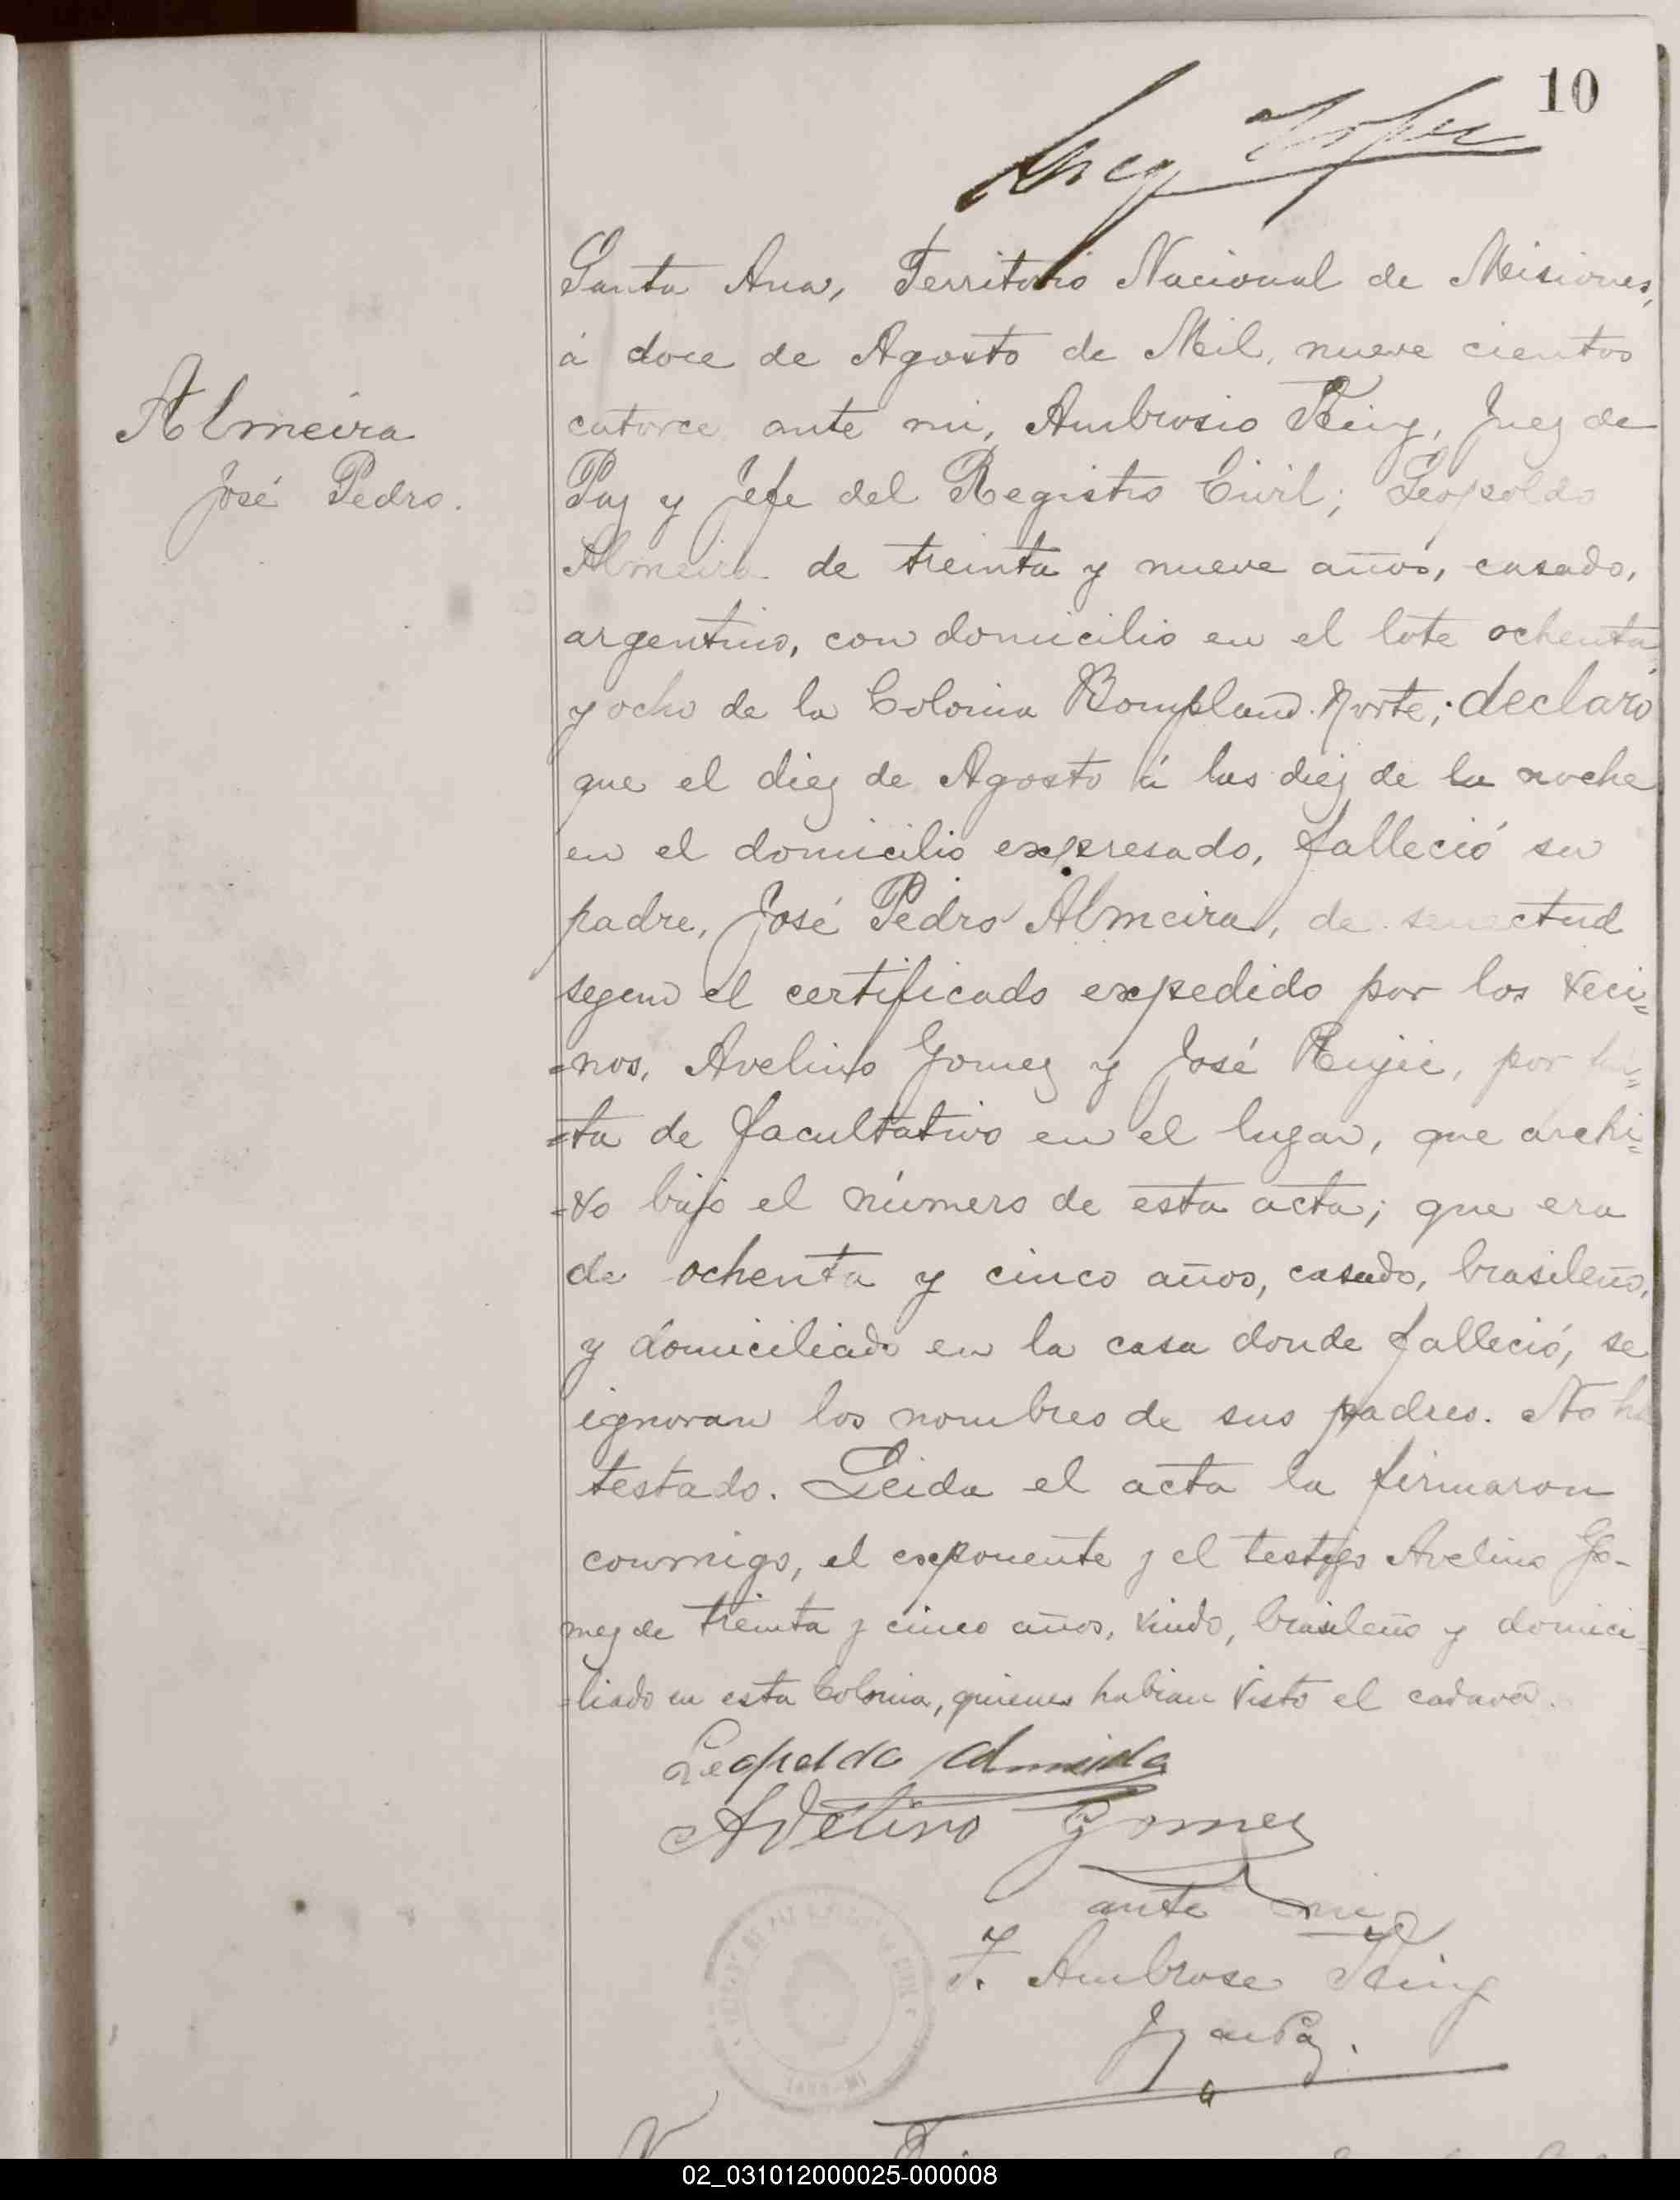 10
Santa Ana, Territorio Nacional de Misiones,
á doce de Agosto de Mil, nueve cientos
Almeira
catorce ante mi, Ambrosio King, Juez de
José Pedro.
Paz y Jefe del Registro Civil; Leopoldo
Almeira de treinta y nueve años, casado,
argentino, con domicilio en el lote ochenta
y ocho de la Colonia Bompland Norte; declaró
que el diez de Agosto á las diez de la noche
en el domicilio expresado, falleció su
padre, José Pedro Almeira, de senectud
segun el certificado expedido por los veci=
=nos, Avelino Gomez y José, por
=ta de facultativo en el lugar, que archi=
=vo bajo el número de esta acta; que era
de ochenta y cinco años, casado, brasileño,
y domiciliado en la casa donde falleció, se
ignoran los nombres de sus padres. No ha
testado. Leida el acta la firmaron
conmigo, el exponente y el testigo Avelino Go-
mez de treinta y cinco años, viudo, brasileño y domici=
=liado en esta Colonia, quienes habian visto el cadaver.
Leopoldo Almeida
Avelino Gomez
ante mi
F. Ambrose King
J de Paz.
02_031012000025-000008